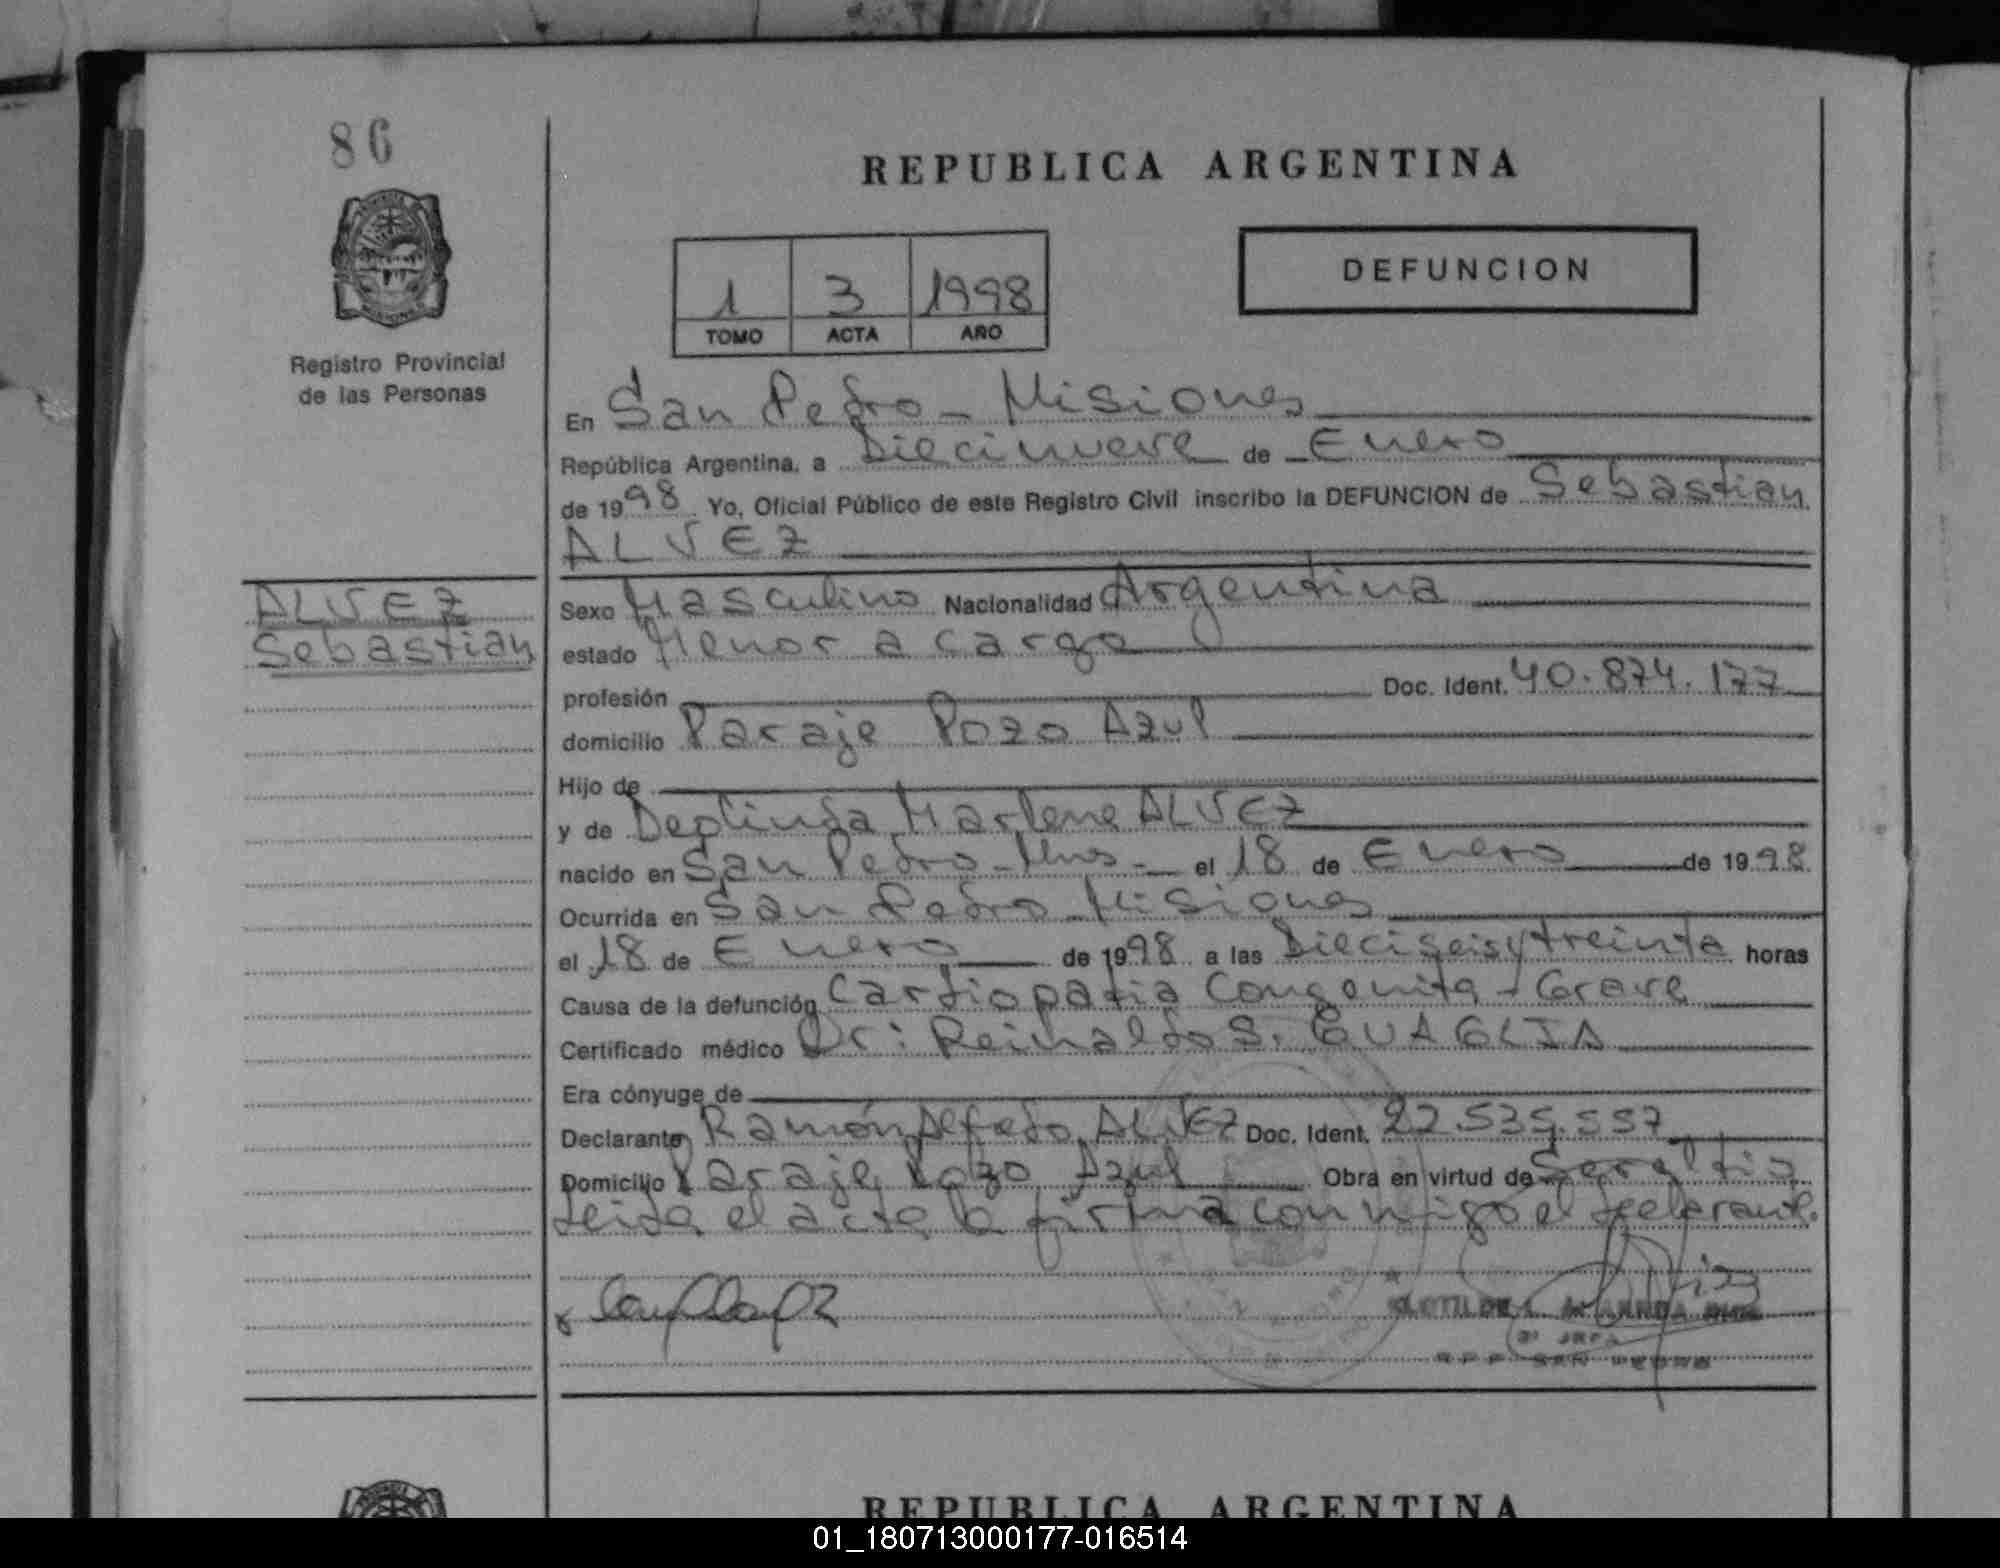 86
REPUBLICA ARGENTINA
DEFUNCION
1 3 1998
TOMO ACTA AÑO
Registro Provincial
de las Personas
En San Pedro - Misiones
República Argentina, a Diecinueve de Enero
de 1998 Yo, Oficial Público de este Registro Civil inscribo la DEFUNCION de Sebastian
ALVEZ
ALVEZ
Sebastian
Sexo Masculino Nacionalidad Argentina
estado Menor a cargo
profesión Doc. Ident. 40.874.177
domicilio Paraje Pozo Azul
Hijo de
y de Deolinda Marlene ALVEZ
nacido en San Pedro - Mnes - el 18 de Enero de 1998
Ocurrida en San Pedro Misiones
el 18 de Enero de 1998 a las Dieciseis y treinta horas
Causa de la defunción Cardiopatia Congenita - Grave
Certificado médico Dr: Reinaldo S. GUAGLIA
Era cónyuge de
Declarante Ramón Alfredo ALVEZ Doc. Ident. 22.535.557
Domicilio Paraje Pozo Azul Obra en virtud de
Leida el acta la firma con migo el declarante.
2° JEFA
R.P.P. SAN PEDRO
REPUBLICA ARGENTINA
01_180713000177-016514